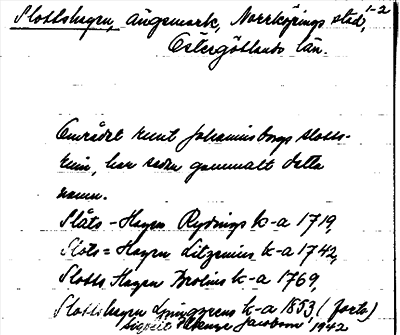 Slottshagen, ängsmark, Norrköpings stad, 1-2
Östergötlands län.
Området runt Johannisborgs slotts-
ruin, har sedan gammalt detta
namn.
Slåts-Hagen Rydings k-a 1719,
Slots=Hagen Litzenius k-a 1742,
Slotts Hagen Brolins k-a 1769,
Slottshagen Ljunggrens k-a 1853 (forts)
Jacobson 1942